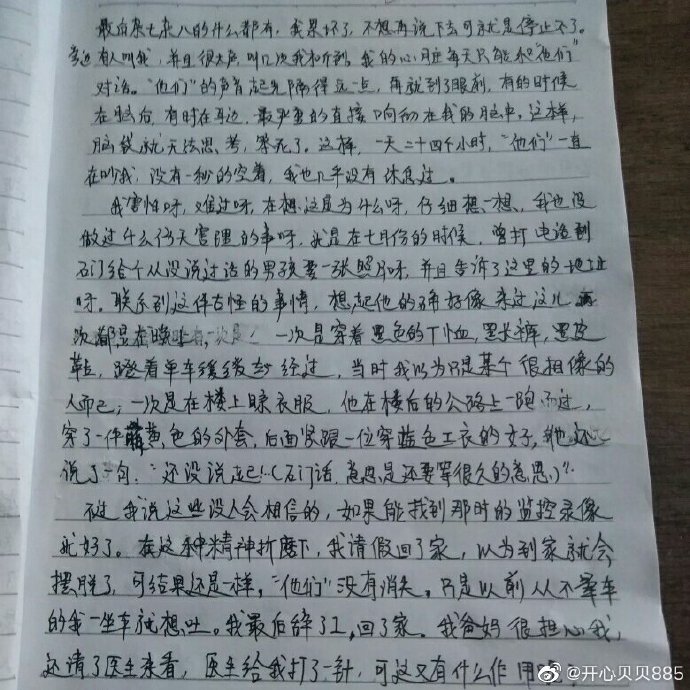 最后杂七杂八的什么都有，我累坏了，不想再说下去可就是停止不了。
旁边有人叫我，并且很大声叫几次我才听到，我的心脏每天只能和“他们”
对话。“他们”的声音起先隔得远一点，再就到了眼前，有的时候
在脑后，有时在耳边，最严重的直接响彻在我的脑中。这样，
脑袋就无法思考，笨死了。这样，一天二十四个小时，“他们”一直
在吵我，没有一秒的空着，我也几乎没有休息过。
我害怕呀，难过呀，在想这是为什么呀，仔细想一想，我也没
做过什么伤天害理的事呀，就是在七月份的时候，曾打电话到
石门给个从没说过话的男孩要一张照片呀，并且告诉了这里的地址
呀。联系到这件古怪的事情，想起他的确好像来过这儿
次都是在晚上，一次是穿着黑色的T恤，黑长裤，黑皮
鞋，蹬着单车缓缓 经过，当时我以为只是某个很相像的
人而已；一次是在楼上晾衣服，他在楼后的公路上一跑而过，
穿了一件黄色的外套，后面紧跟一位穿蓝色工衣的女子，她还
说了句，“还没说起！（石门话，意思是还要等很久的意思）”
不过我说这些没人会相信的，如果能找到那时的监控录像
就好了。在这种精神折磨下，我请假回了家，以为到家就会
摆脱了，可结果还是一样，“他们”没有消失。只是以前从不晕车
的我一坐车就想吐。我最后辞了工，回了家。我爸妈很担心我，
还请了医生来看，医生给我打了一针，可这又有什么作用
@开心贝贝885